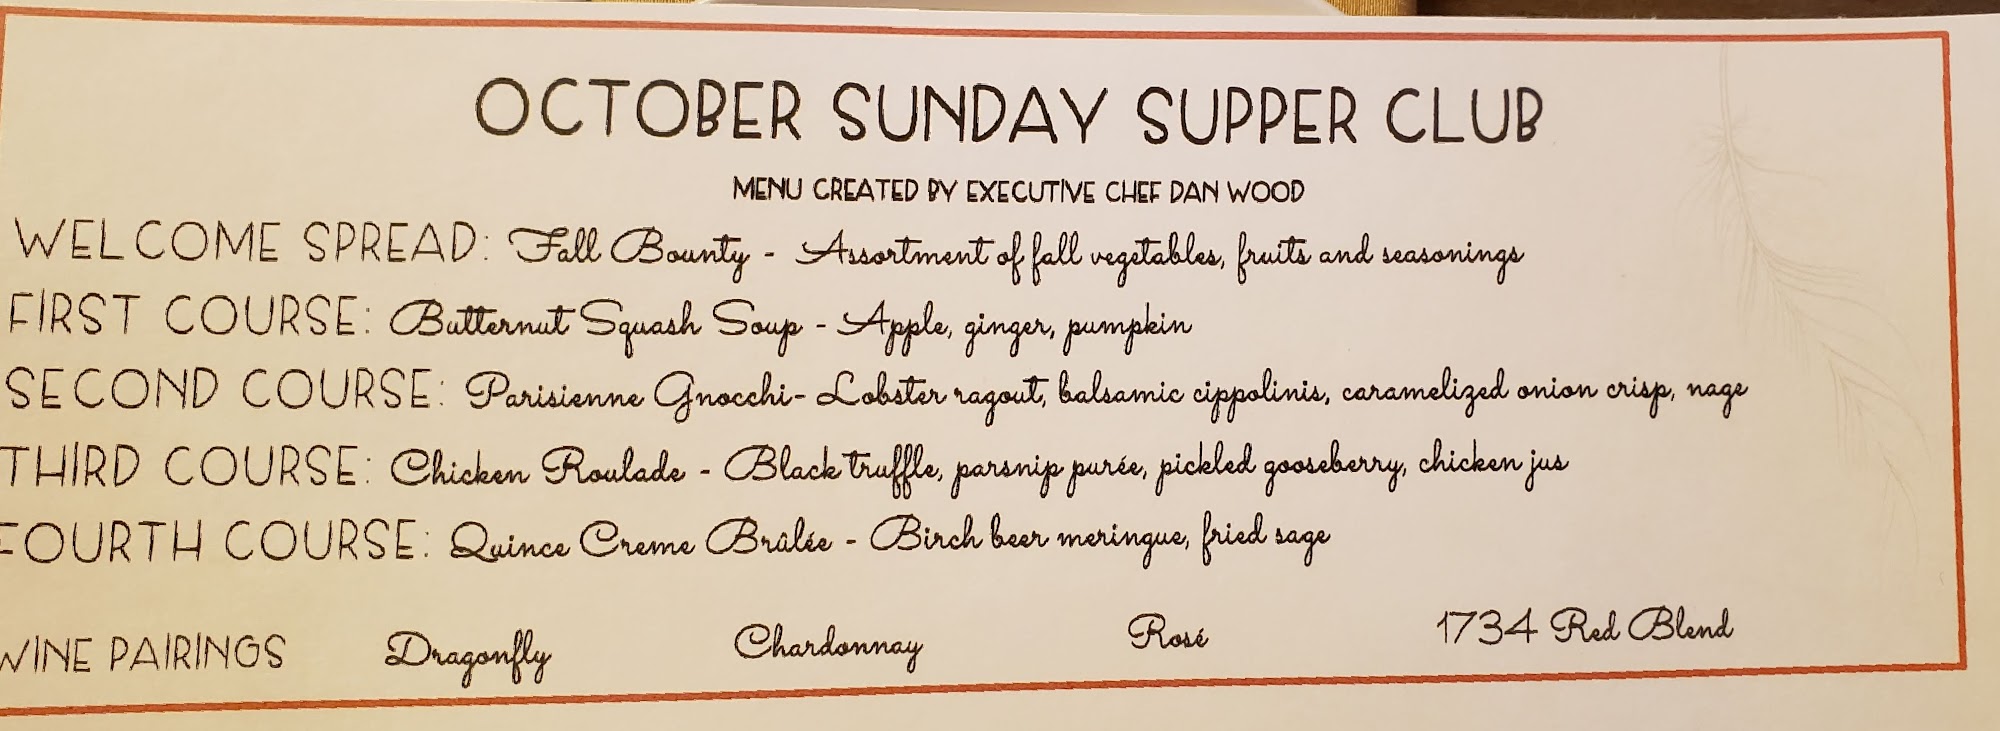 OCTOBER SUNDAY SUPPER CLUB
MENU CREATED BY EXECUTIVE CHEF DAN WOOD
WELCOME SPREAD: Fall Bounty - Assortment of fall vegetables, fruits and seasonings
FIRST COURSE: Butternut Squash Soup - Apple, ginger, pumpkin
SECOND COURSE: Parisienne Gnocchi- Lobster ragout, balsamic cippolinis, caramelized onion crisp, nage
THIRD COURSE: Chicken Roulade - Black truffle, parsnip purée, pickled gooseberry, chicken jus
FOURTH COURSE: Quince Creme Brûlée - Birch beer meringue, fried sage
WINE PAIRINGS Dragonfly Chardonnay Rosé 1734 Red Blend